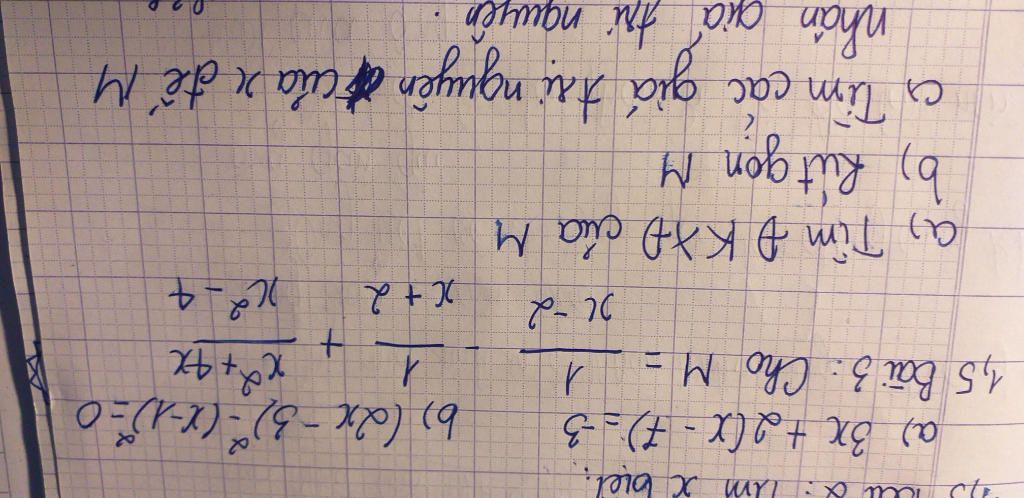 1,5 Bài 2: Tìm x biết:
a) 3x + 2(x - 7) = -3 b) (2x - 3)² - (x-1)² = 0
1,5 Bài 3: Cho M = 1/(x-2) - 1/(x+2) + (x²+4x)/(x²-4)
a) Tìm ĐKXĐ của M
b) Rút gọn M
c) Tìm các giá trị nguyên của x để M
nhận giá trị nguyên.